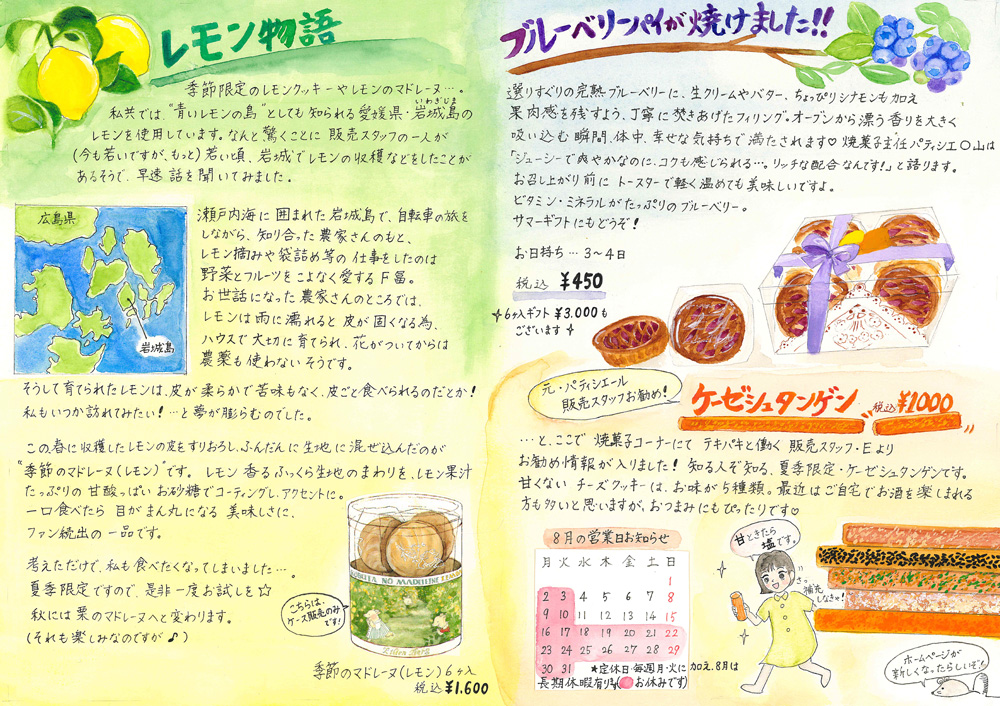 レモン物語
季節限定のレモンクッキーやレモンのマドレーヌ…。
私共では、"青いレモンの島"としても知られる愛媛県・岩城島の
いわぎじま
レモンを使用しています。なんと驚くことに 販売スタッフの一人が
(今も若いですが、もっと)若い頃、岩城でレモンの収穫などをしたことが
あるそうで、早速 話を聞いてみました。
広島県
岩城島
瀬戸内海に囲まれた岩城島で、自転車の旅を
しながら、知り合った農家さんのもと、
レモン摘みや袋詰め等の仕事をしたのは
野菜とフルーツをこよなく愛するF冨。
お世話になった農家さんのところでは、
レモンは雨に濡れると皮が固くなる為、
ハウスで大切に育てられ、花がついてからは
農薬も使わないそうです。
そうして育てられたレモンは、皮が柔らかで苦味もなく、皮ごと食べられるのだとか!
私もいつか訪れてみたい!…と夢が膨らむのでした。
この春に収穫したレモンの皮をすりおろし、ふんだんに生地に混ぜ込んだのが
"季節のマドレーヌ(レモン)"です。レモン香るふっくら生地のまわりを、レモン果汁
たっぷりの甘酸っぱいお砂糖でコーティングし、アクセントに。
一口食べたら 目がまん丸になる 美味しさに、
ファン続出の一品です。
考えただけで、私も食べたくなってしまいました…。
夏季限定ですので、是非一度お試しを☆
秋には栗のマドレーヌへと変わります。
(それも楽しみなのですが♪)
こちらは、
ケース販売のみ
です!
季節のマドレーヌ(レモン)6ヶ入
税込 ¥1.600
ブルーベリーパイが焼けました!!
選りすぐりの完熟ブルーベリーに、生クリームやバター、ちょっぴりシナモンも加え
果肉感を残すよう、丁寧に焚きあげたフィリング。オーブンから漂う香りを大きく
吸い込む瞬間、体中、幸せな気持ちで満たされます♡ 焼菓子主任パティシエ〇山は
「ジューシーで爽やかなのに、コクも感じられる…。リッチな配合なんです!」と語ります。
お召し上がり前に トースターで軽く温めても美味しいですよ。
ビタミン・ミネラルがたっぷりのブルーベリー。
サマーギフトにもどうぞ!
お日持ち…3〜4日
税込 ¥450
6ヶ入ギフト ¥3.000も
ございます
元・パティシエール
販売スタッフお勧め!
ケーゼシュタンゲン 税込 ¥1000
…と、ここで 焼菓子コーナーにて テキパキと働く 販売スタッフ・Eより
お勧め情報が入りました! 知る人ぞ知る、夏季限定・ケーゼシュタンゲンです。
甘くない チーズクッキーは、お味が5種類。最近はご自宅でお酒を楽しまれる
方も多いと思いますが、おつまみにもぴったりです♡
8月の営業日お知らせ
月 火 水 木 金 土 日
1
2 3 4 5 6 7 8
9 10 11 12 13 14 15
16 17 18 19 20 21 22
23 24 25 26 27 28 29
30 31
★定休日・毎週月・火に加え、8月は
長期休暇有り(●お休みです)
甘いときたら
塩です。
補充
しなきゃ!
ホームページが
新しくなったらしいぞ!